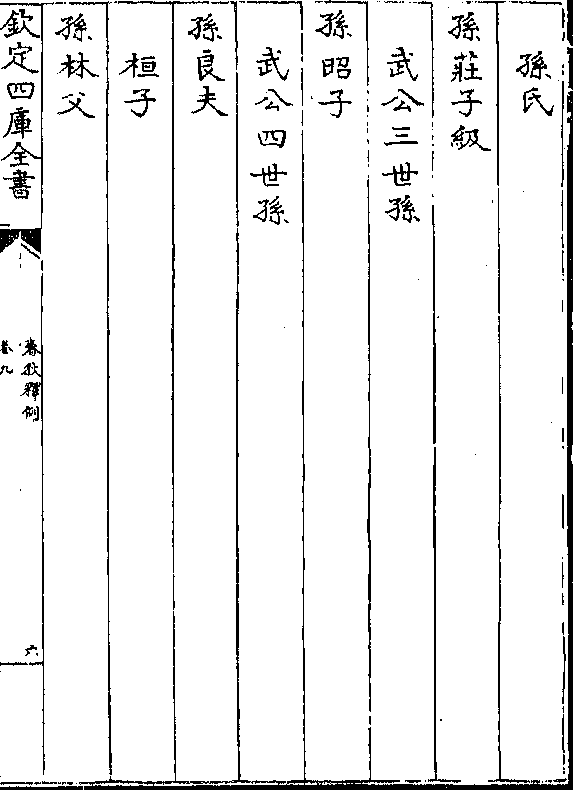 孫氏
孫莊子級
武公三世孫
孫昭子
武公四世孫
孫良夫
桓子
孫林父
欽定四庫全書
春秋釋例
卷九
六